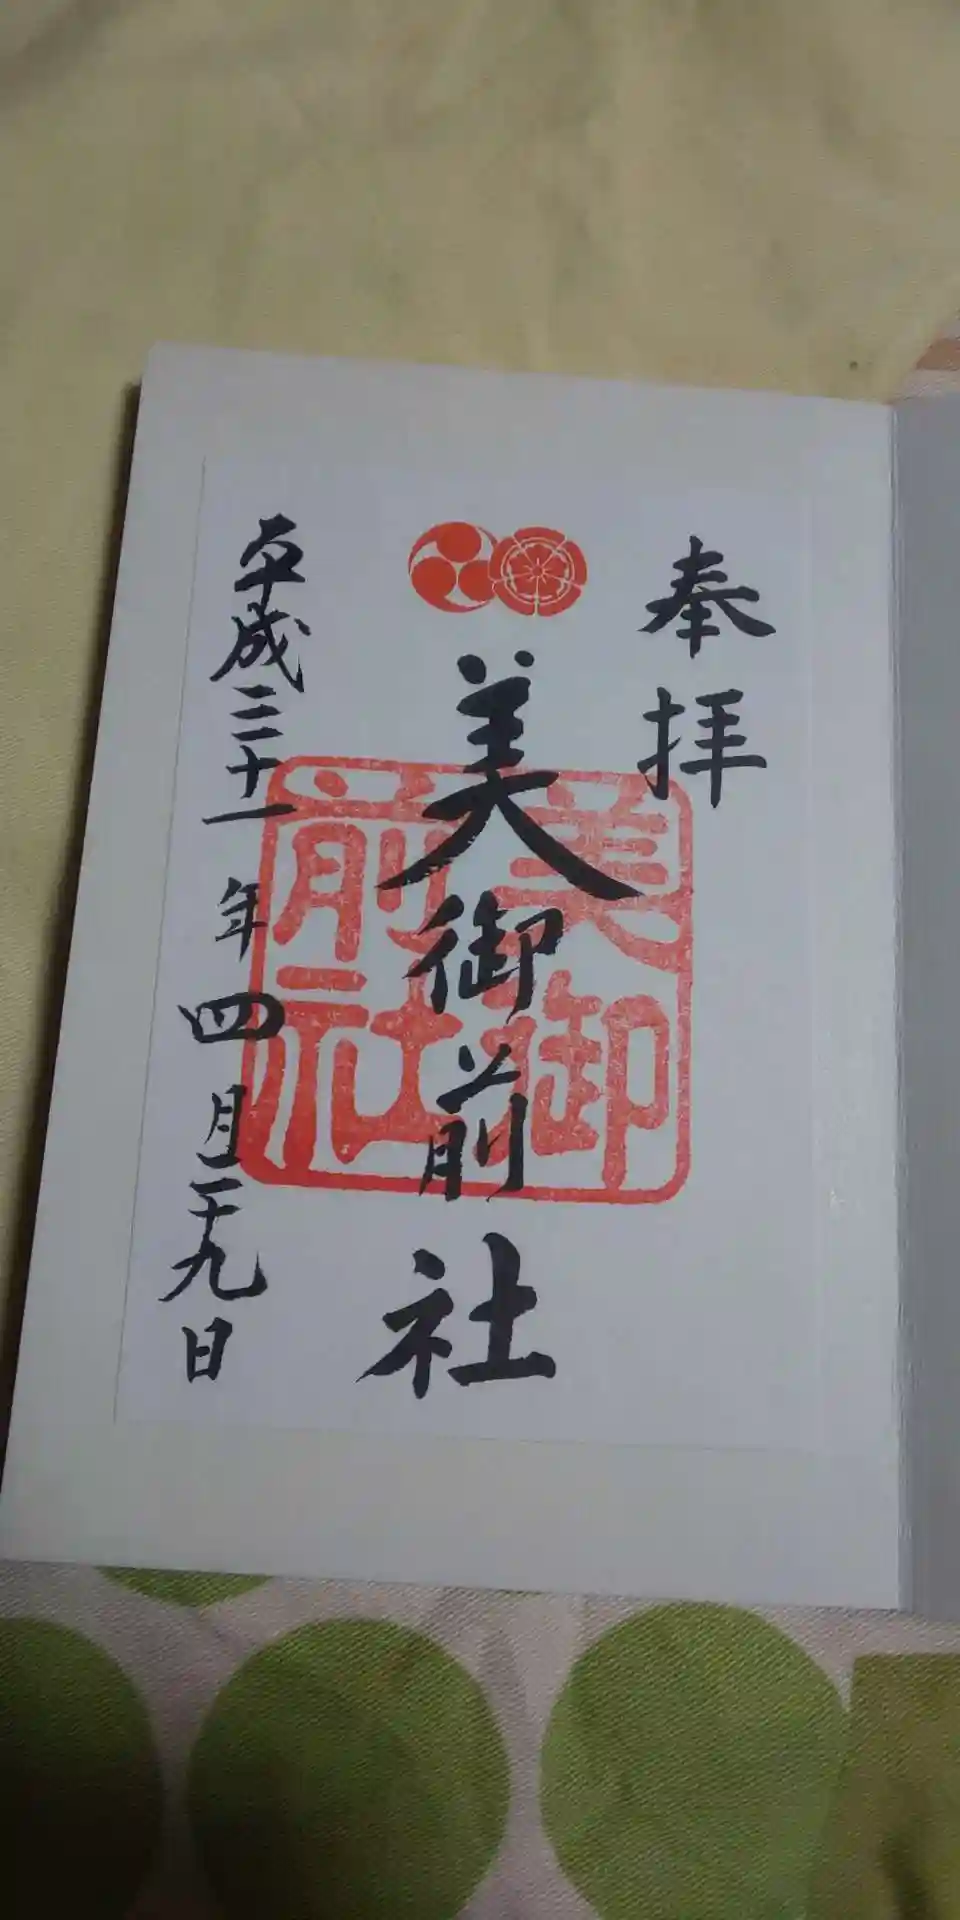 奉拝
美御前社
美御
前社
平成三十一年四月二十九日